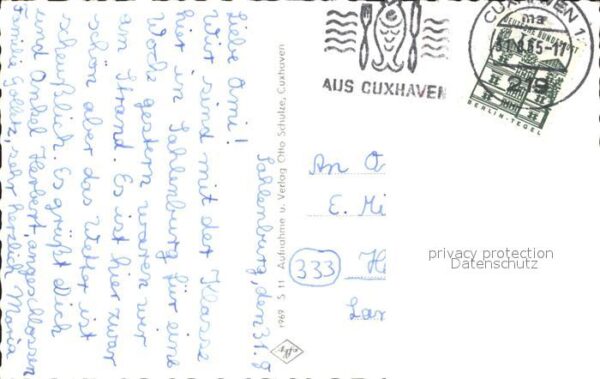 Sahlenburg, den 31.8.
Liebe Omi!
Wir sind mit der Klasse
hier in Sahlenburg für eine
Woche gestern waren wir
am Strand. Es ist hier zwar
schön aber das Wetter ist
scheußlich. Es grüßt dich
und Onkel Herbert, angeschlossen
sehr herzlich Maria
1969 S 11 Aufnahme u. Verlag Otto Schulze, Cuxhaven
AUS CUXHAVEN
CUXHAVEN 1
ma
31.8.65-17
219
DEUTSCHE BUNDESPOST
BERLIN-TEGEL
An O
E. Mi
333 H
Lan
privacy protection
Datenschutz